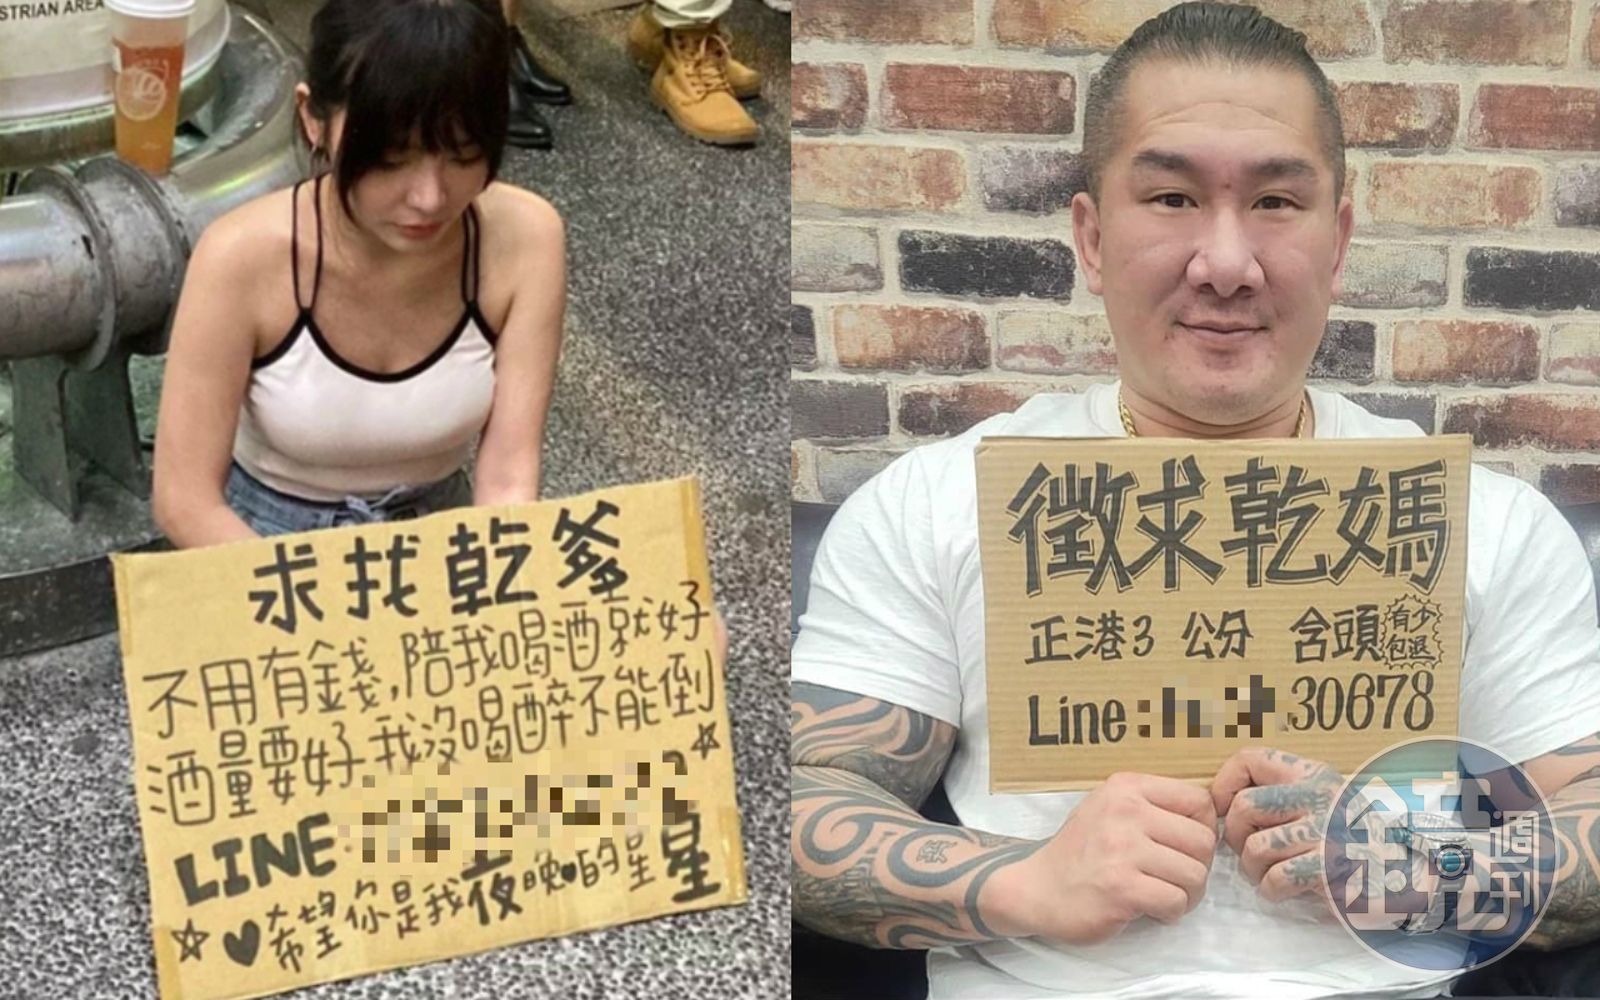 STRIAN AREA
求找乾爹
不用有錢,陪我喝酒就好
酒量要好,我沒喝醉不能倒
LINE:
希望你是我夜晚的星星
徵求乾媽
正港3公分 含頭 有少包退
Line: 30678
鏡週刊